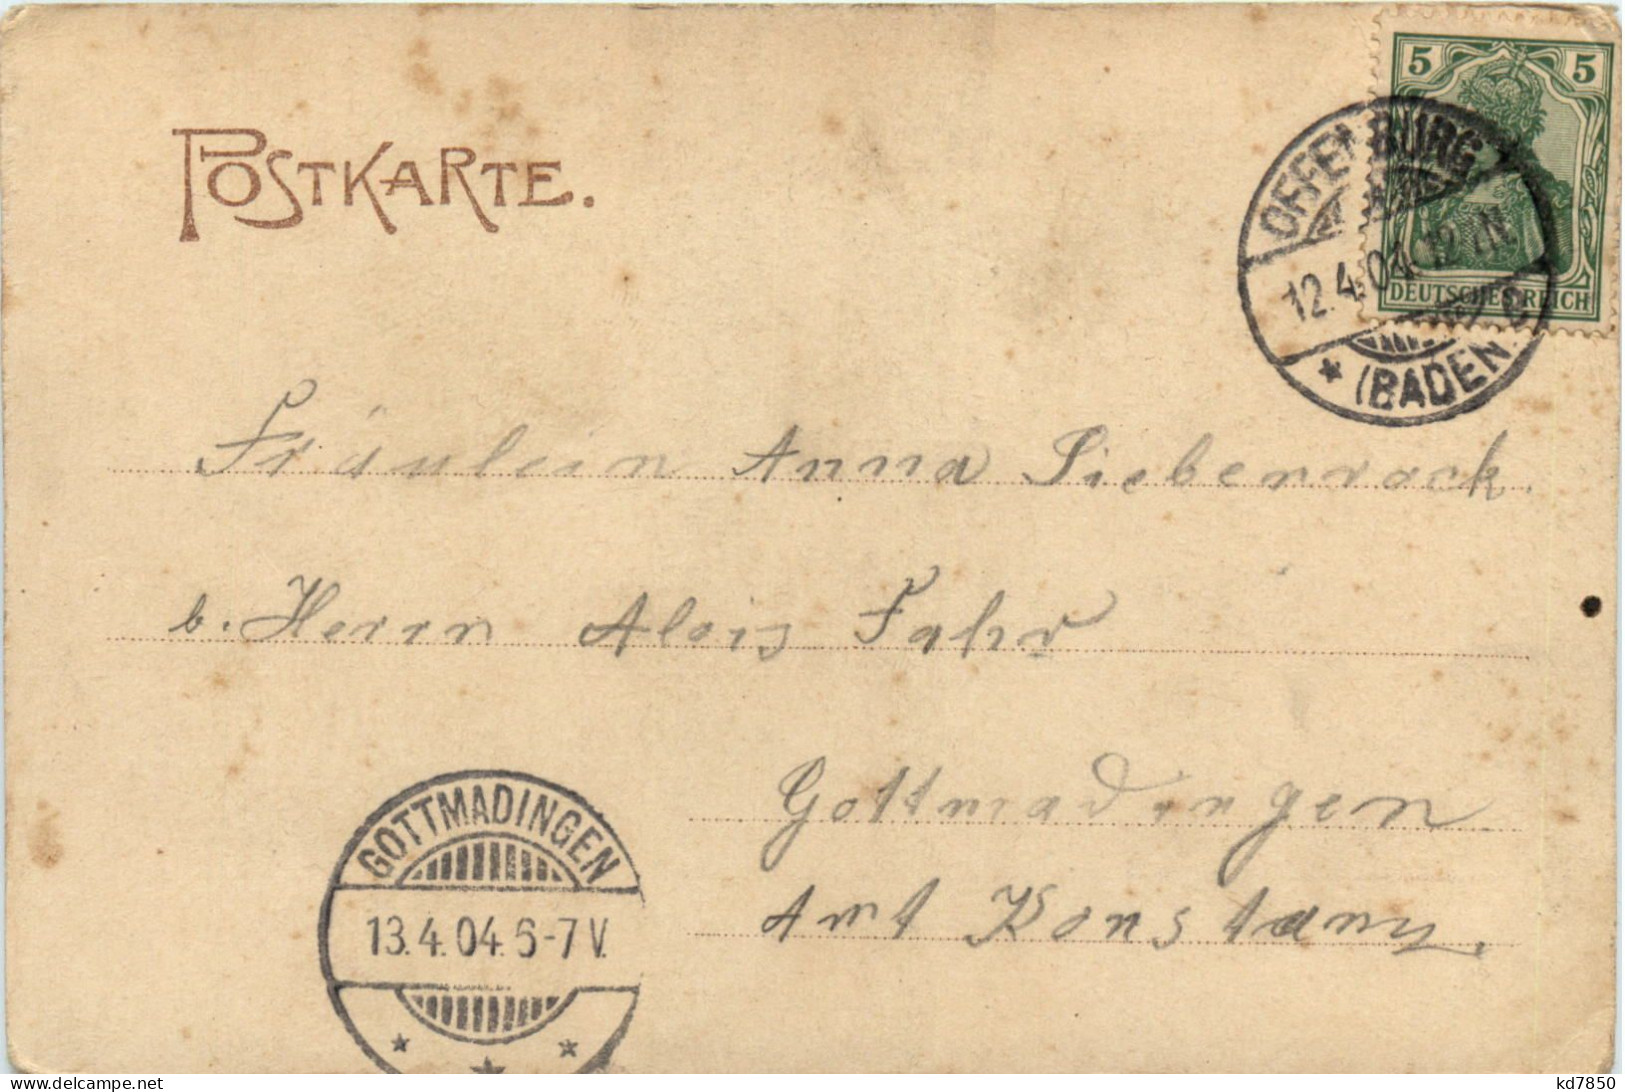 POSTKARTE.
5 5
DEUTSCHES REICH
OFFENBURG
12.4.04. 12
* (BADEN)
Fräulein Anna Siebenrock.
b. Herrn Alois Fahr
Gottmadingen
Amt Konstanz.
GOTTMADINGEN
13.4.04. 6-7 V.
* * *
kd7850